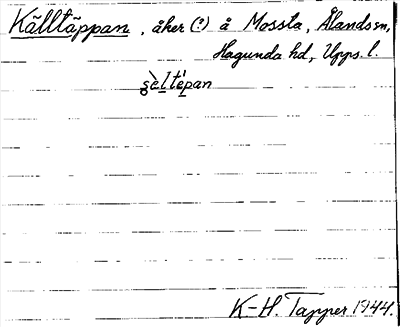 Källtäppan, åker (?) å Mossta, Ålands sn,
Hagunda hd, Upps. l.
ʂèltépan
K-H. Tapper 1944.